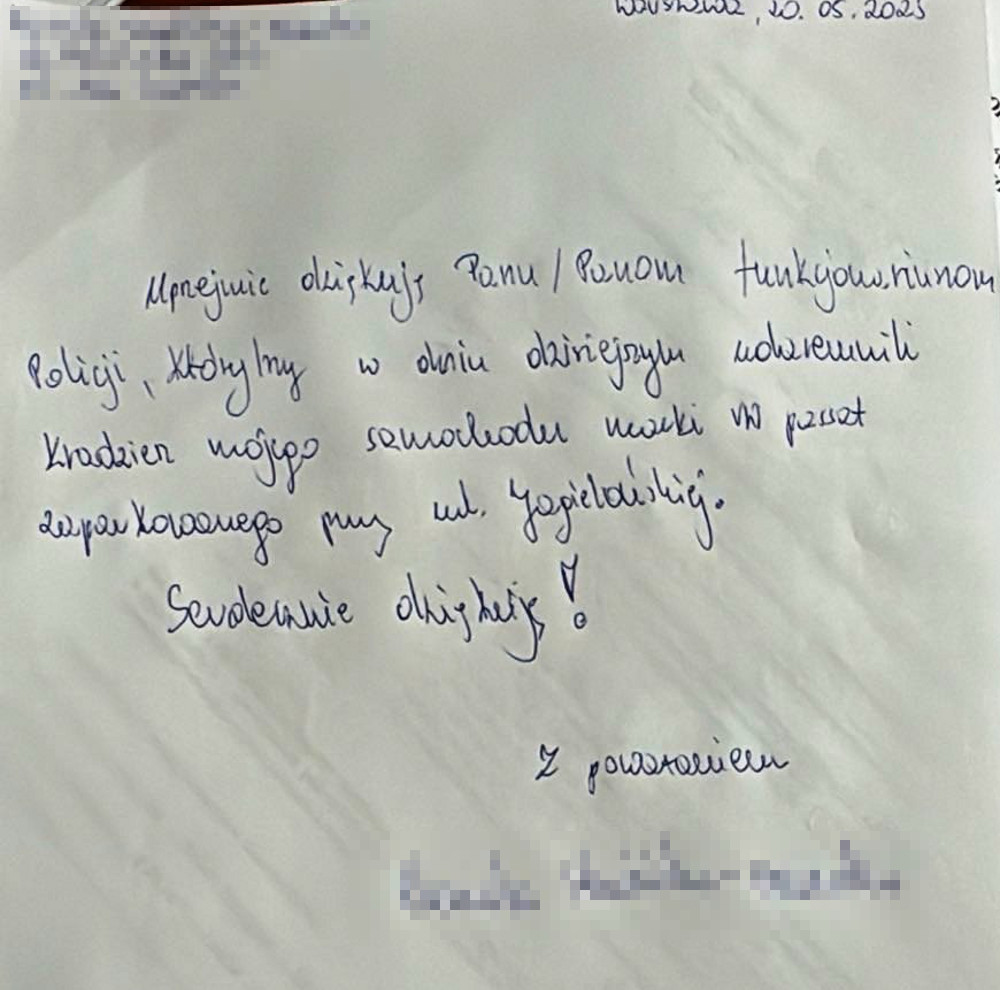 Warszawa, 20.05.2023
Uprzejmie dziękuję Panu/Panom funkcjonariuszom
Policji, którzy w dniu dzisiejszym udaremnili
kradzież mojego samochodu marki VW passat
zaparkowanego przy ul. Jagielońskiej.
Serdecznie dziękuję!
Z poważaniem